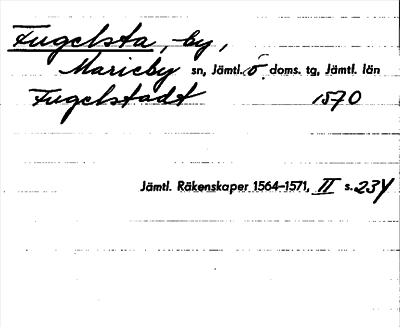 Fugelsta, by,
Marieby sn, Jämtl. ö. doms. tg, Jämtl. län
Fugelstadt 1570
Jämtl. Räkenskaper 1564–1571, II s. 234